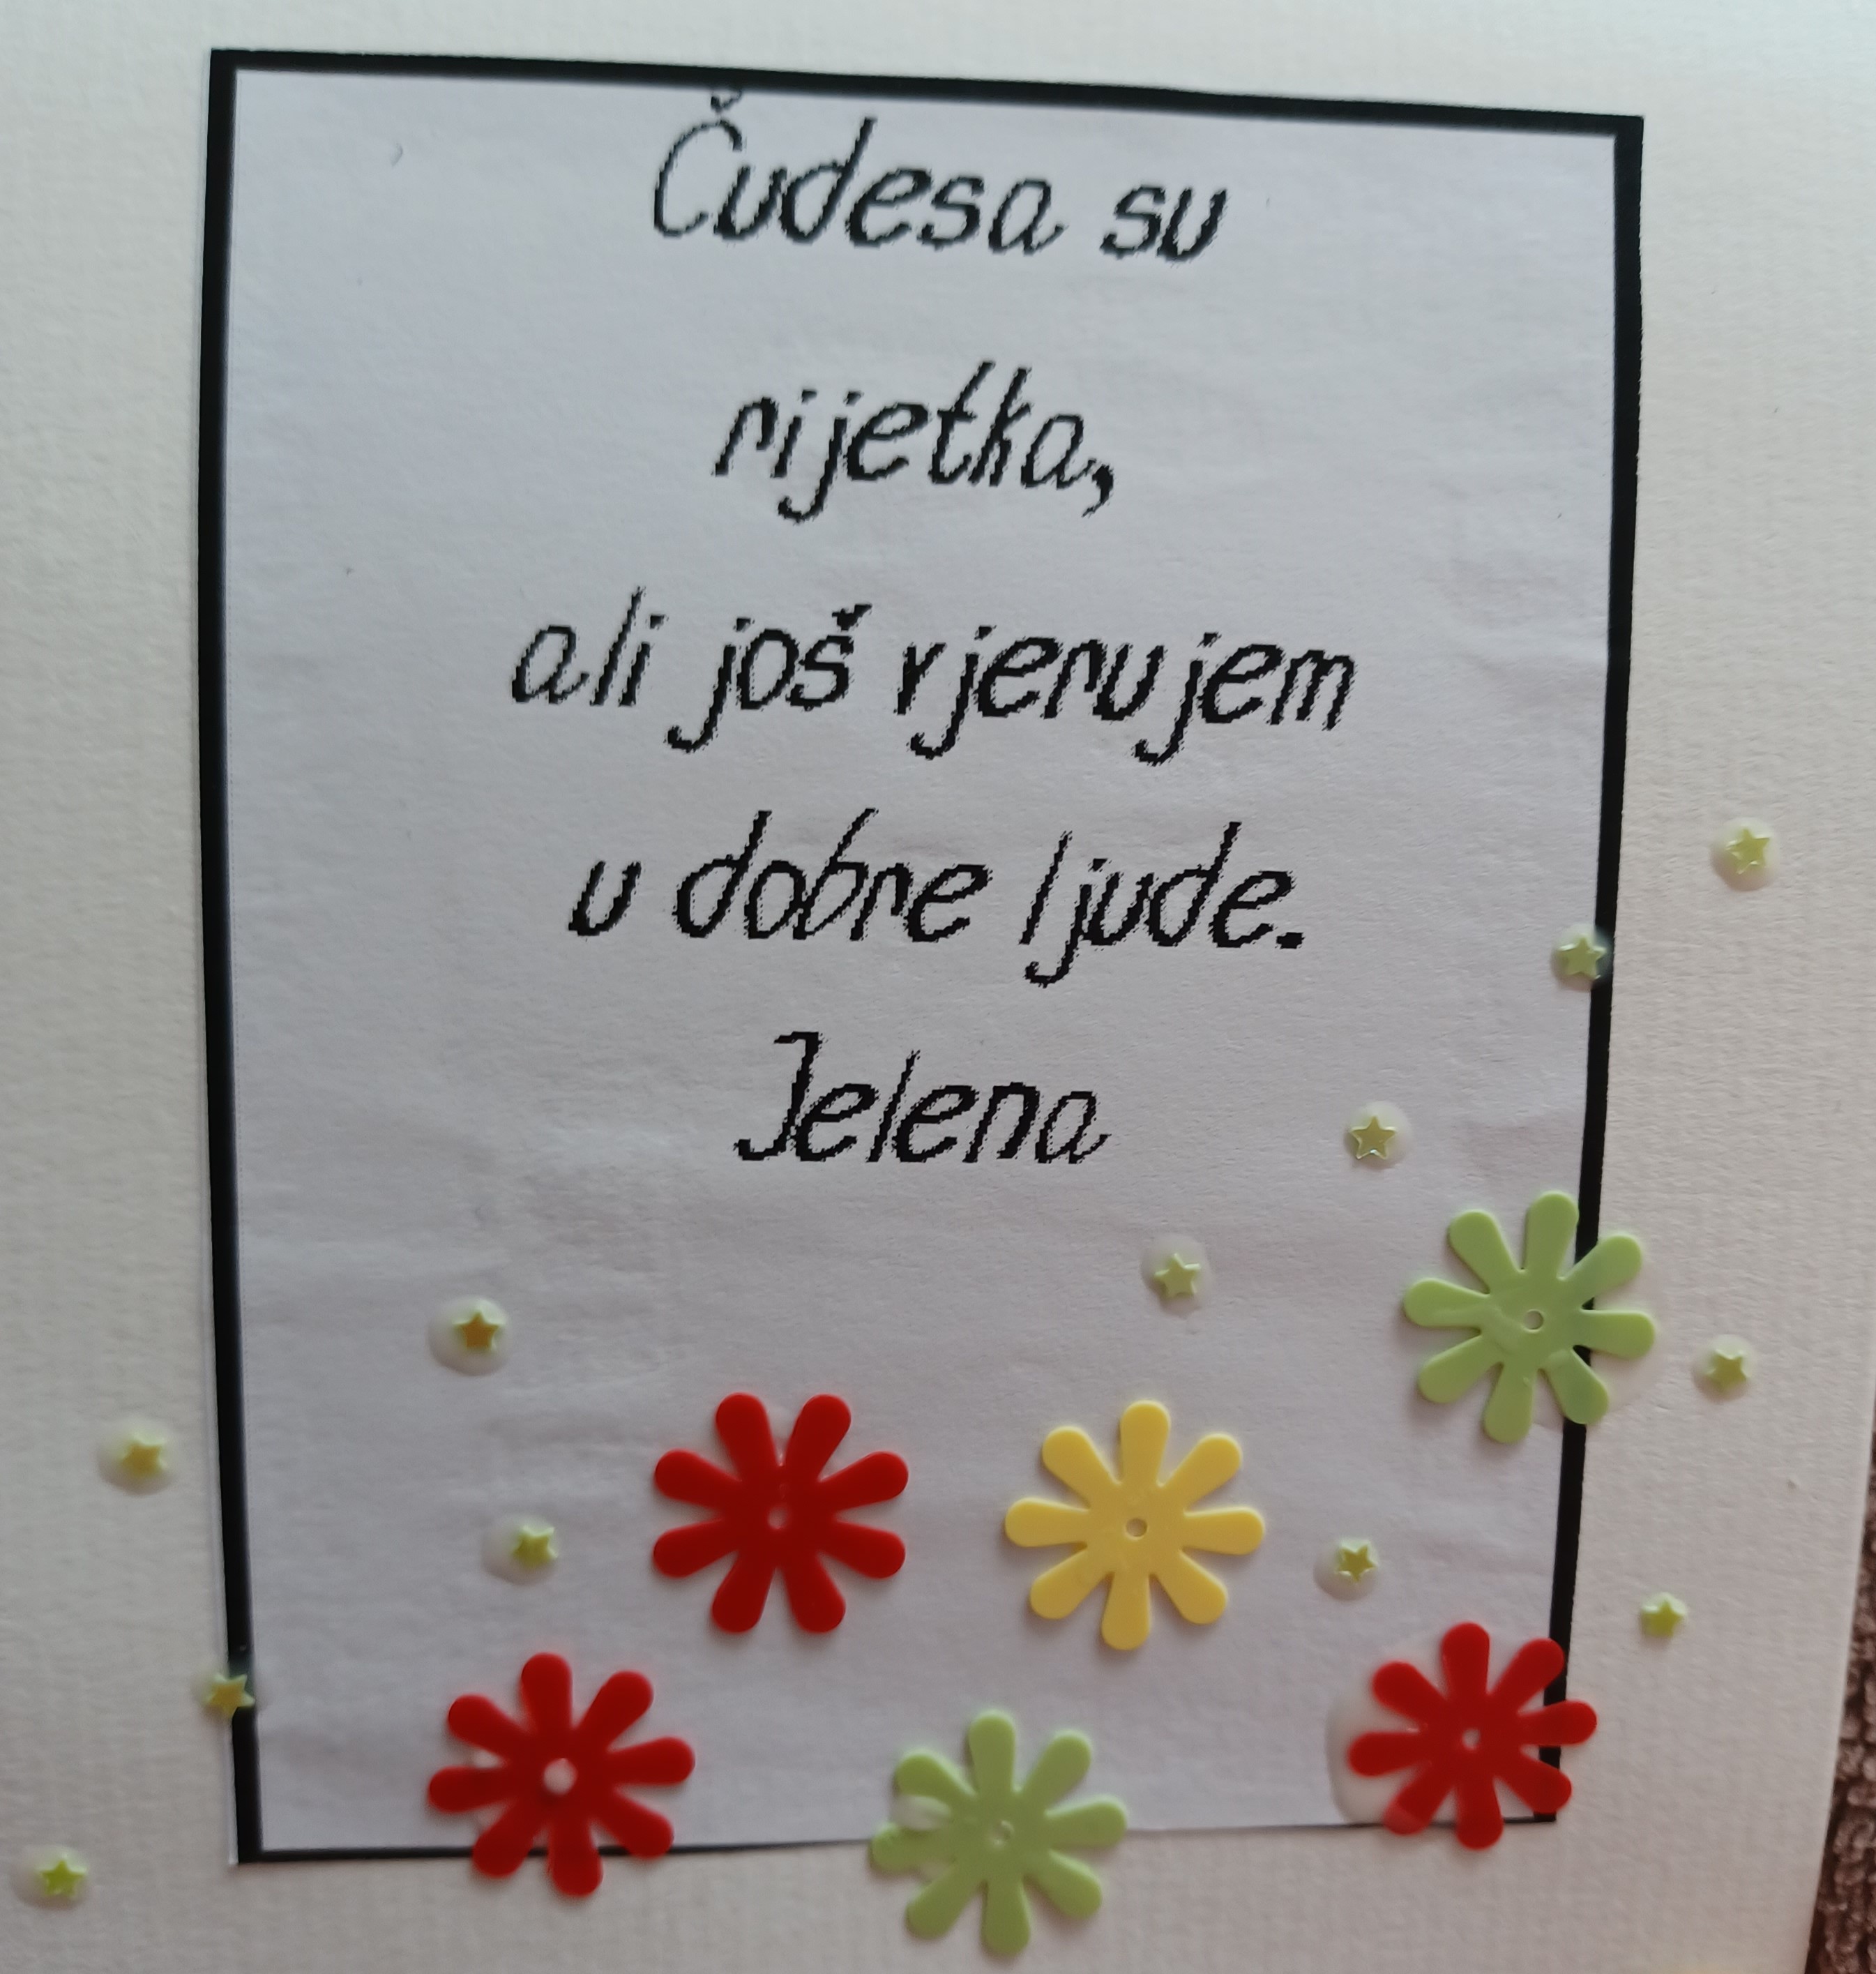 Čudesa su
rijetka,
ali još vjerujem
u dobre ljude.
Jelena